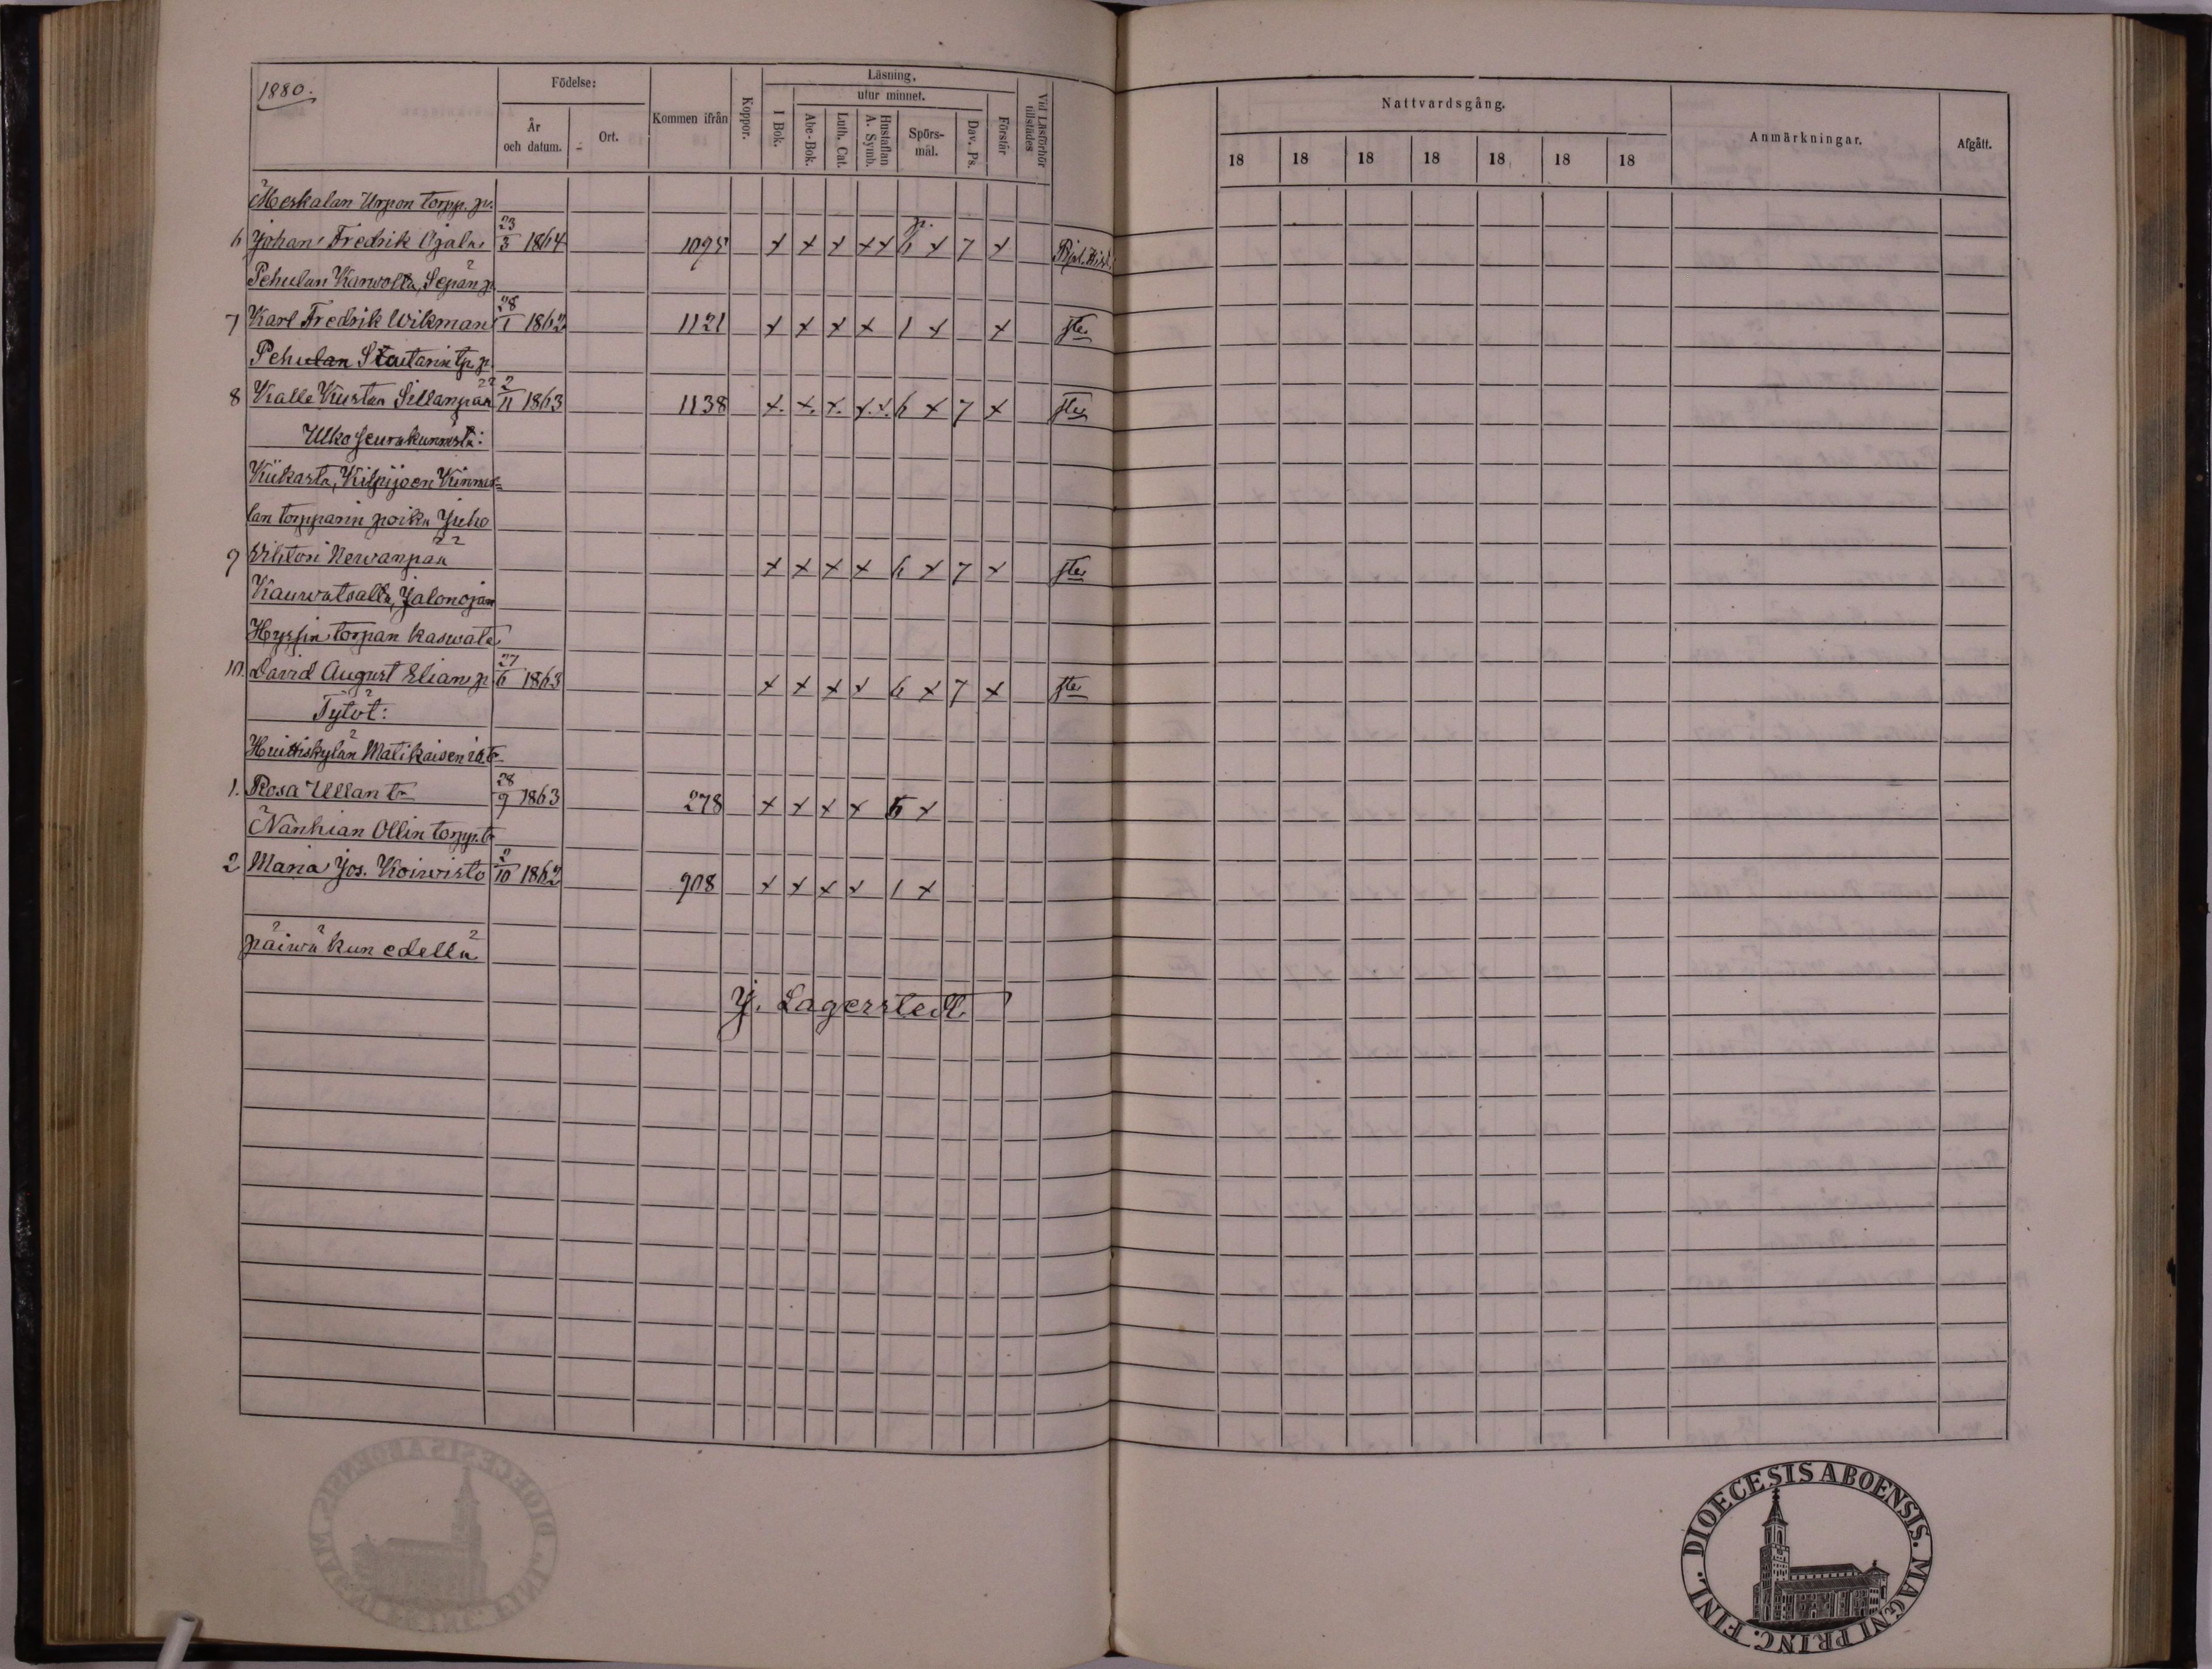 1880.
Födelse:
År och datum.
Ort.
Kommen ifrån
Koppor.
Läsning,
utur minnet.
I Bok.
Abc-Bok.
Luth. Cat.
Hustaflan A. Symb.
Spörs-mål.
Dav. Ps.
Förstår
Vid Läsförhör tillstädes
Nattvardsgång.
18 18 18 18 18 18 18
Anmärkningar.
Afgått.
Meskalan Urpon torpp. p.
6 Johan Fredrik Ojala 23/3 1864 1095 x x x x x 6 x 7 x
Pehulan Karwolta, Sepän p.
7 Karl Fredrik Wikman 28/1 1862 1121 x x x x 1 x x
Pehulan Stoutarin tp. p.
8 Kalle Kustaa Sillanpää 2/11 1863 1138 x. x. x. x. x. 6 x 7 x
Ulkoseurakunnista:
Kiikasta, Kilpijoen Kinna=
lan torpparin poika Juho
9 Vihtori Nevanpää x x x x 6 x 7 x
Kauwatsalta, Jalonojan
torpan kaswatti
10. David August Elian p. 27/6 1863 x x x x 6 x 7 x
Tytöt:
Huittiskylän Matikaisen it. t.
1. Rosa Ullan t. 28/9 1863 278 x x x x 6 x
Nanhian Ollin torpp. t.
2 Maria Jos. Koiwisto 2/10 1862 908 x x x x 1 x
päiwä kun edellä
J. Lagerstedt.
DIOECESIS ABOENSIS. MAGNI PRINC. FINL.